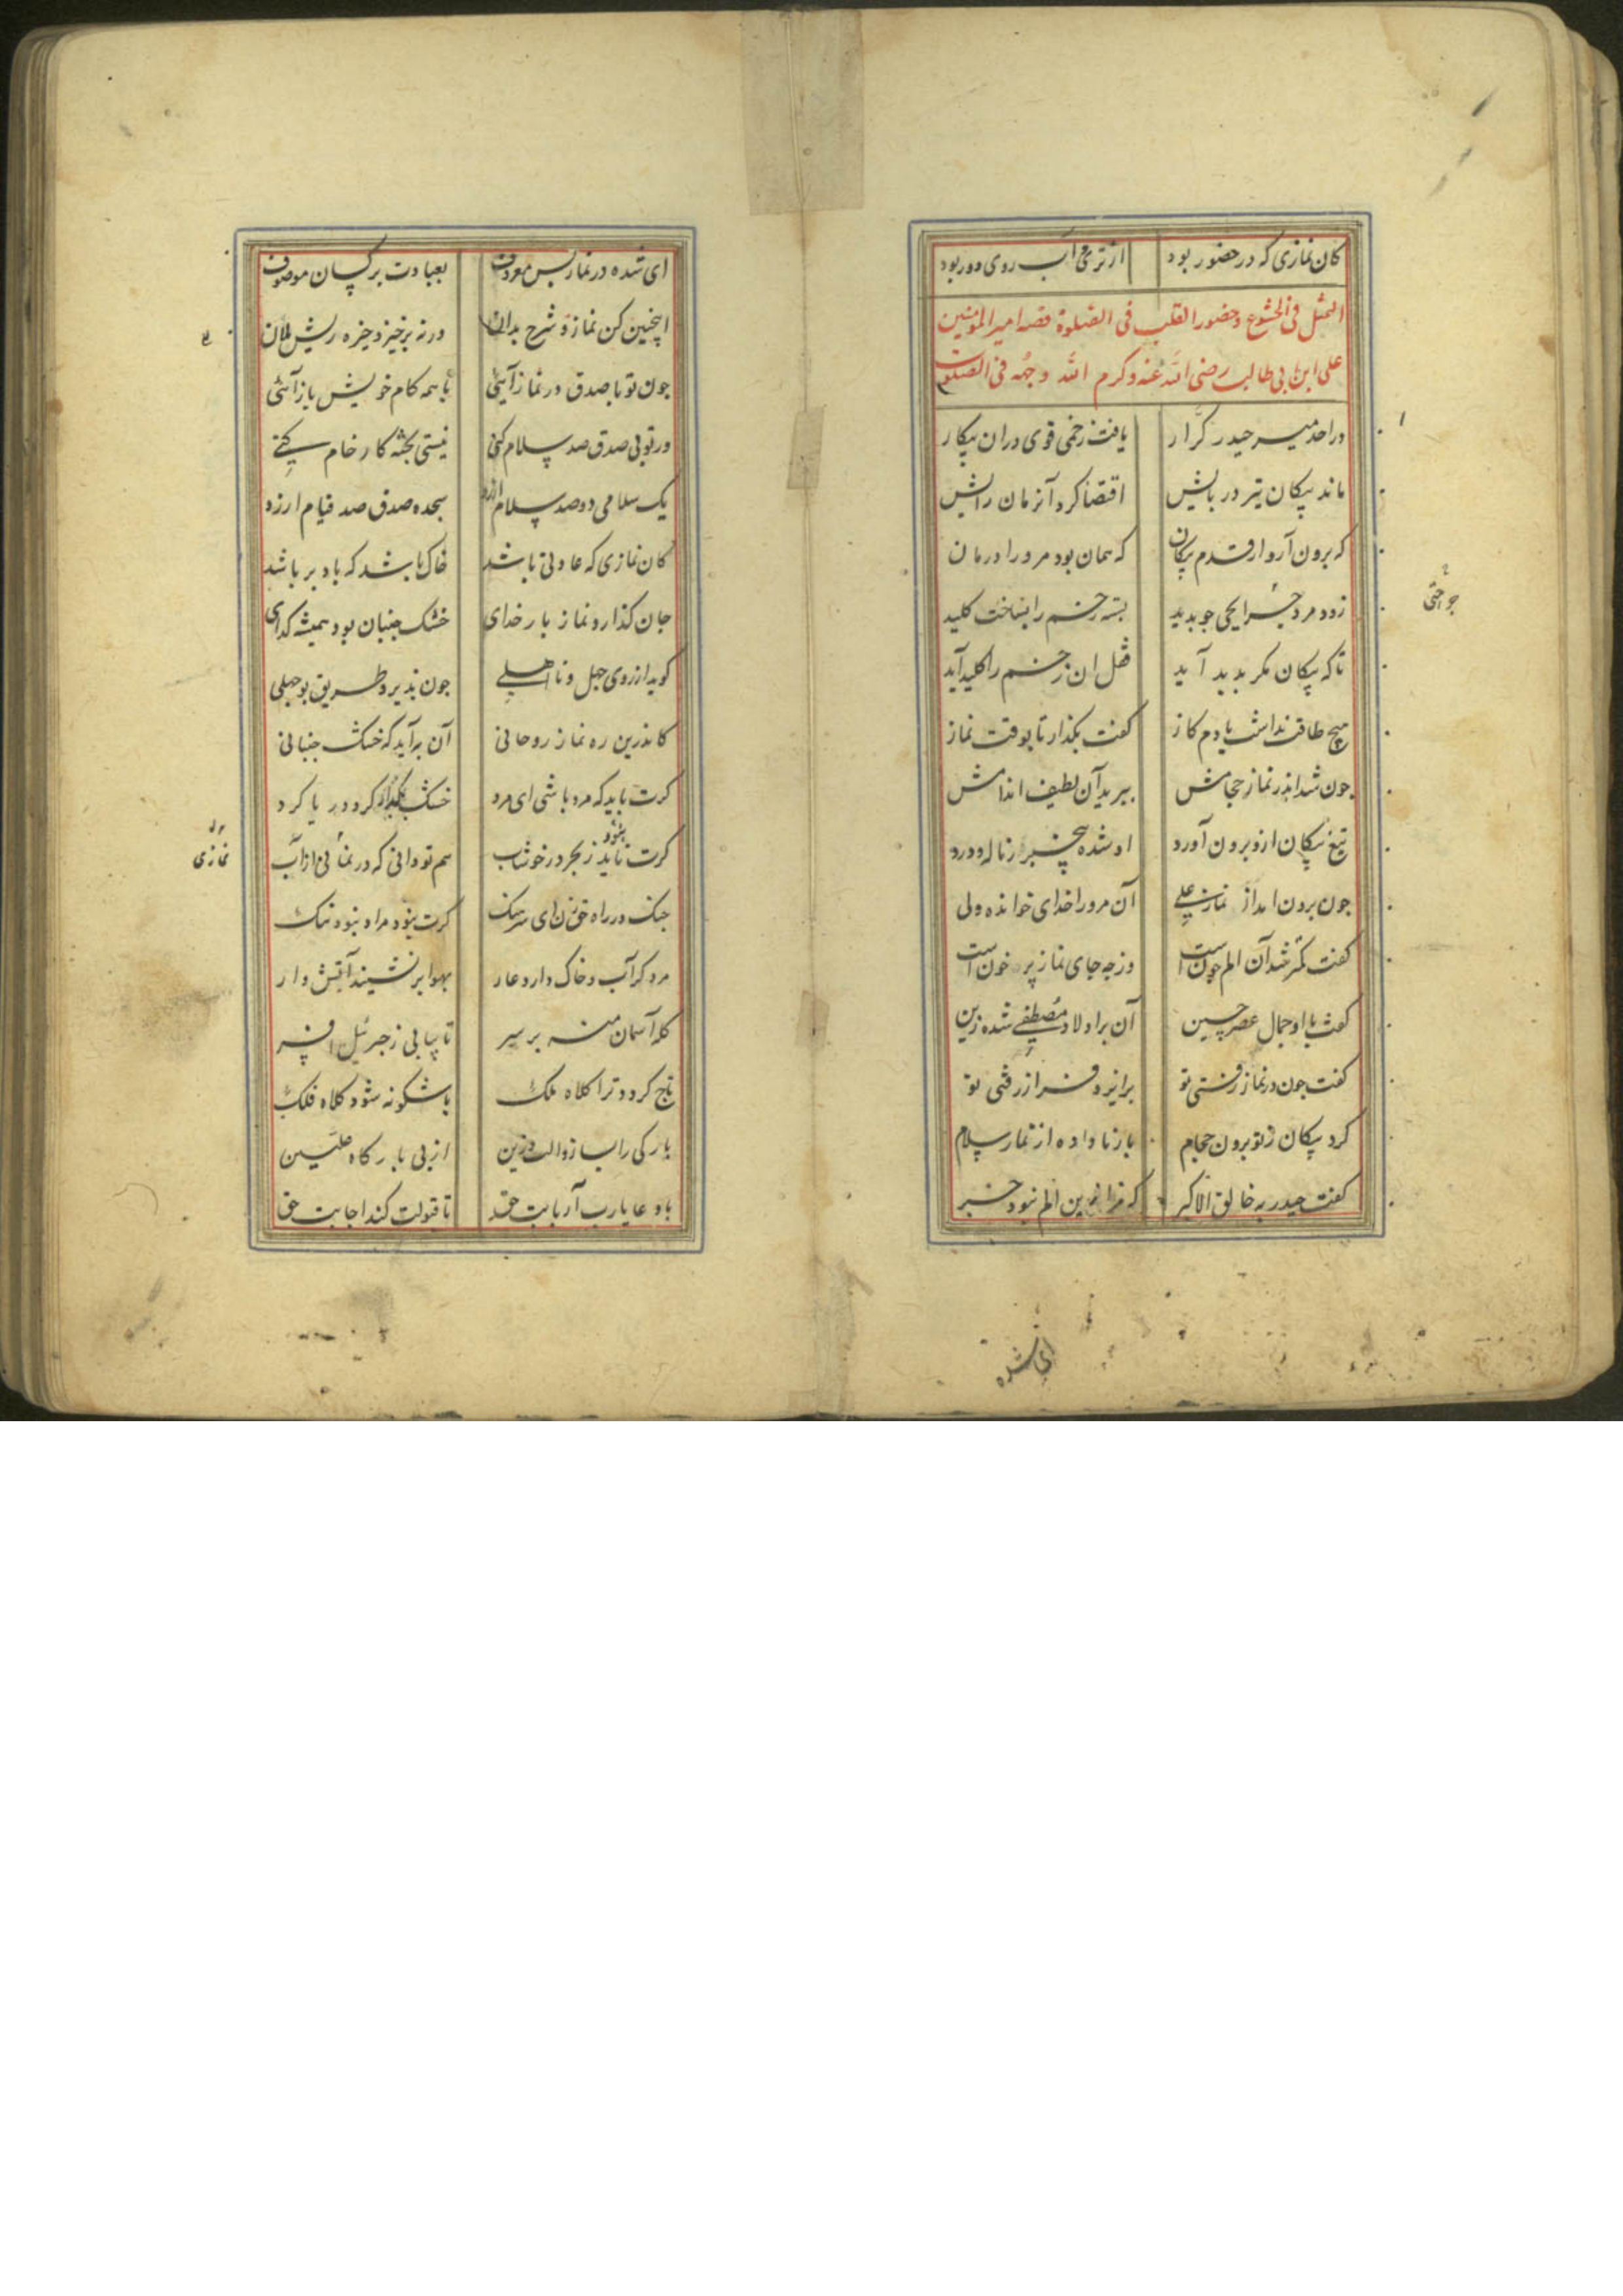 کان نمازی که در حضور بود از تری آب روی دور بود
التمثل فی الخشوع و حضور القلب فی الصلوة قصه امیر المومنین
علی ابن ابی طالب رضی الله عنه و کرم الله وجهه فی الصلوت
در احد میر حیدر کرّار یافت زخمی قوی دران پیکار
ماند پیکان تیر در پایش اقتضا کرد آنزمان رایش
که برون آرد از قدم پیکان که همان بود مرورا درمان
زود مرد جرایحی جو بدید بسته زخم را بساخت کلید
تا که پیکان مکر بدید آید قفل ان زخم را کلید آید
هیچ طاقت نداشت با دم کاز کفت بکذار تا بوقت نماز
جون شد اندر نماز حجامش ببرید آن لطیف اندامش
تیغ پیکان ازو برون آورد او شده بیخبر ز ناله و درد
جون برون امد از نماز علی آن مرورا خدای خوانده ولی
کفت کمتر شد آن الم جونست وز جه جای نماز پر خونست
کفت با او جمال عصر حسین آن بر اولاد مصطفی شده زین
کفت جون در نماز رفتی تو بر ایزد فراز رفتی تو
کرد پیکان ز تو برون حجام باز ناداده از نماز سلام
کفت حیدر به خالق الاکبر که مرا زین الم نبود خبر
جراحتی
ای شده
ای شده در نماز بس معروف بعبادت بر کسان موصوف
اینچنین کن نماز و شرح بدان ورنه برخیز و خیره ریش ملان
جون تو با صدق در نماز آیی با همه کام خویش باز آئی
ور تو بی صدق صد سلام کنی نیستی بخته کار خام کنی
یک سلامی دو صد سلام ارزد سجده صدق صد قیام ارزد
کان نمازی که عادتی باشد خاک باشد که باد بر باشد
جان کذارد نماز بار خدای خشک جنبان بود همیشه کدای
کوید از روی جهل و نا اهلی جون بذیرد طریق بوجهلی
کاندرین ره نماز روحانی آن به آید که خشک جنبانی
کرت باید که مرد باشی ای مرد خشک بکذار کرد دریا کرد
کرت ناید ز بحر در خوشاب هم تو دانی که در نمائی از آب
جنک در راه حق زن ای سرهنک کرت نبود مراد نبود ننک
مرد کز آب و خاک دارد عار بهوا بر نشیند آتش وار
کله آسمان منه بر سر تا بیابی ز جبرئیل افسر
تاج کردد ترا کلاه ملک باشکونه شود کلاه فلک
از بی بارکاه علیین
با دعا یارب آر بابت حق تا قبولت کند اجابت حق
نمازی